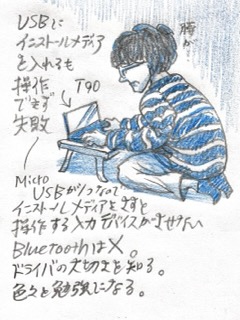 USBに
インストールメディア
を入れるも
操作
できず
失敗
T90
腰が…
Micro
USBが1つなので
インストールメディアをさすと
操作する入力デバイスがさせない
Bluetoothは×。
ドライバの大切さを知る。
色々と勉強になる。